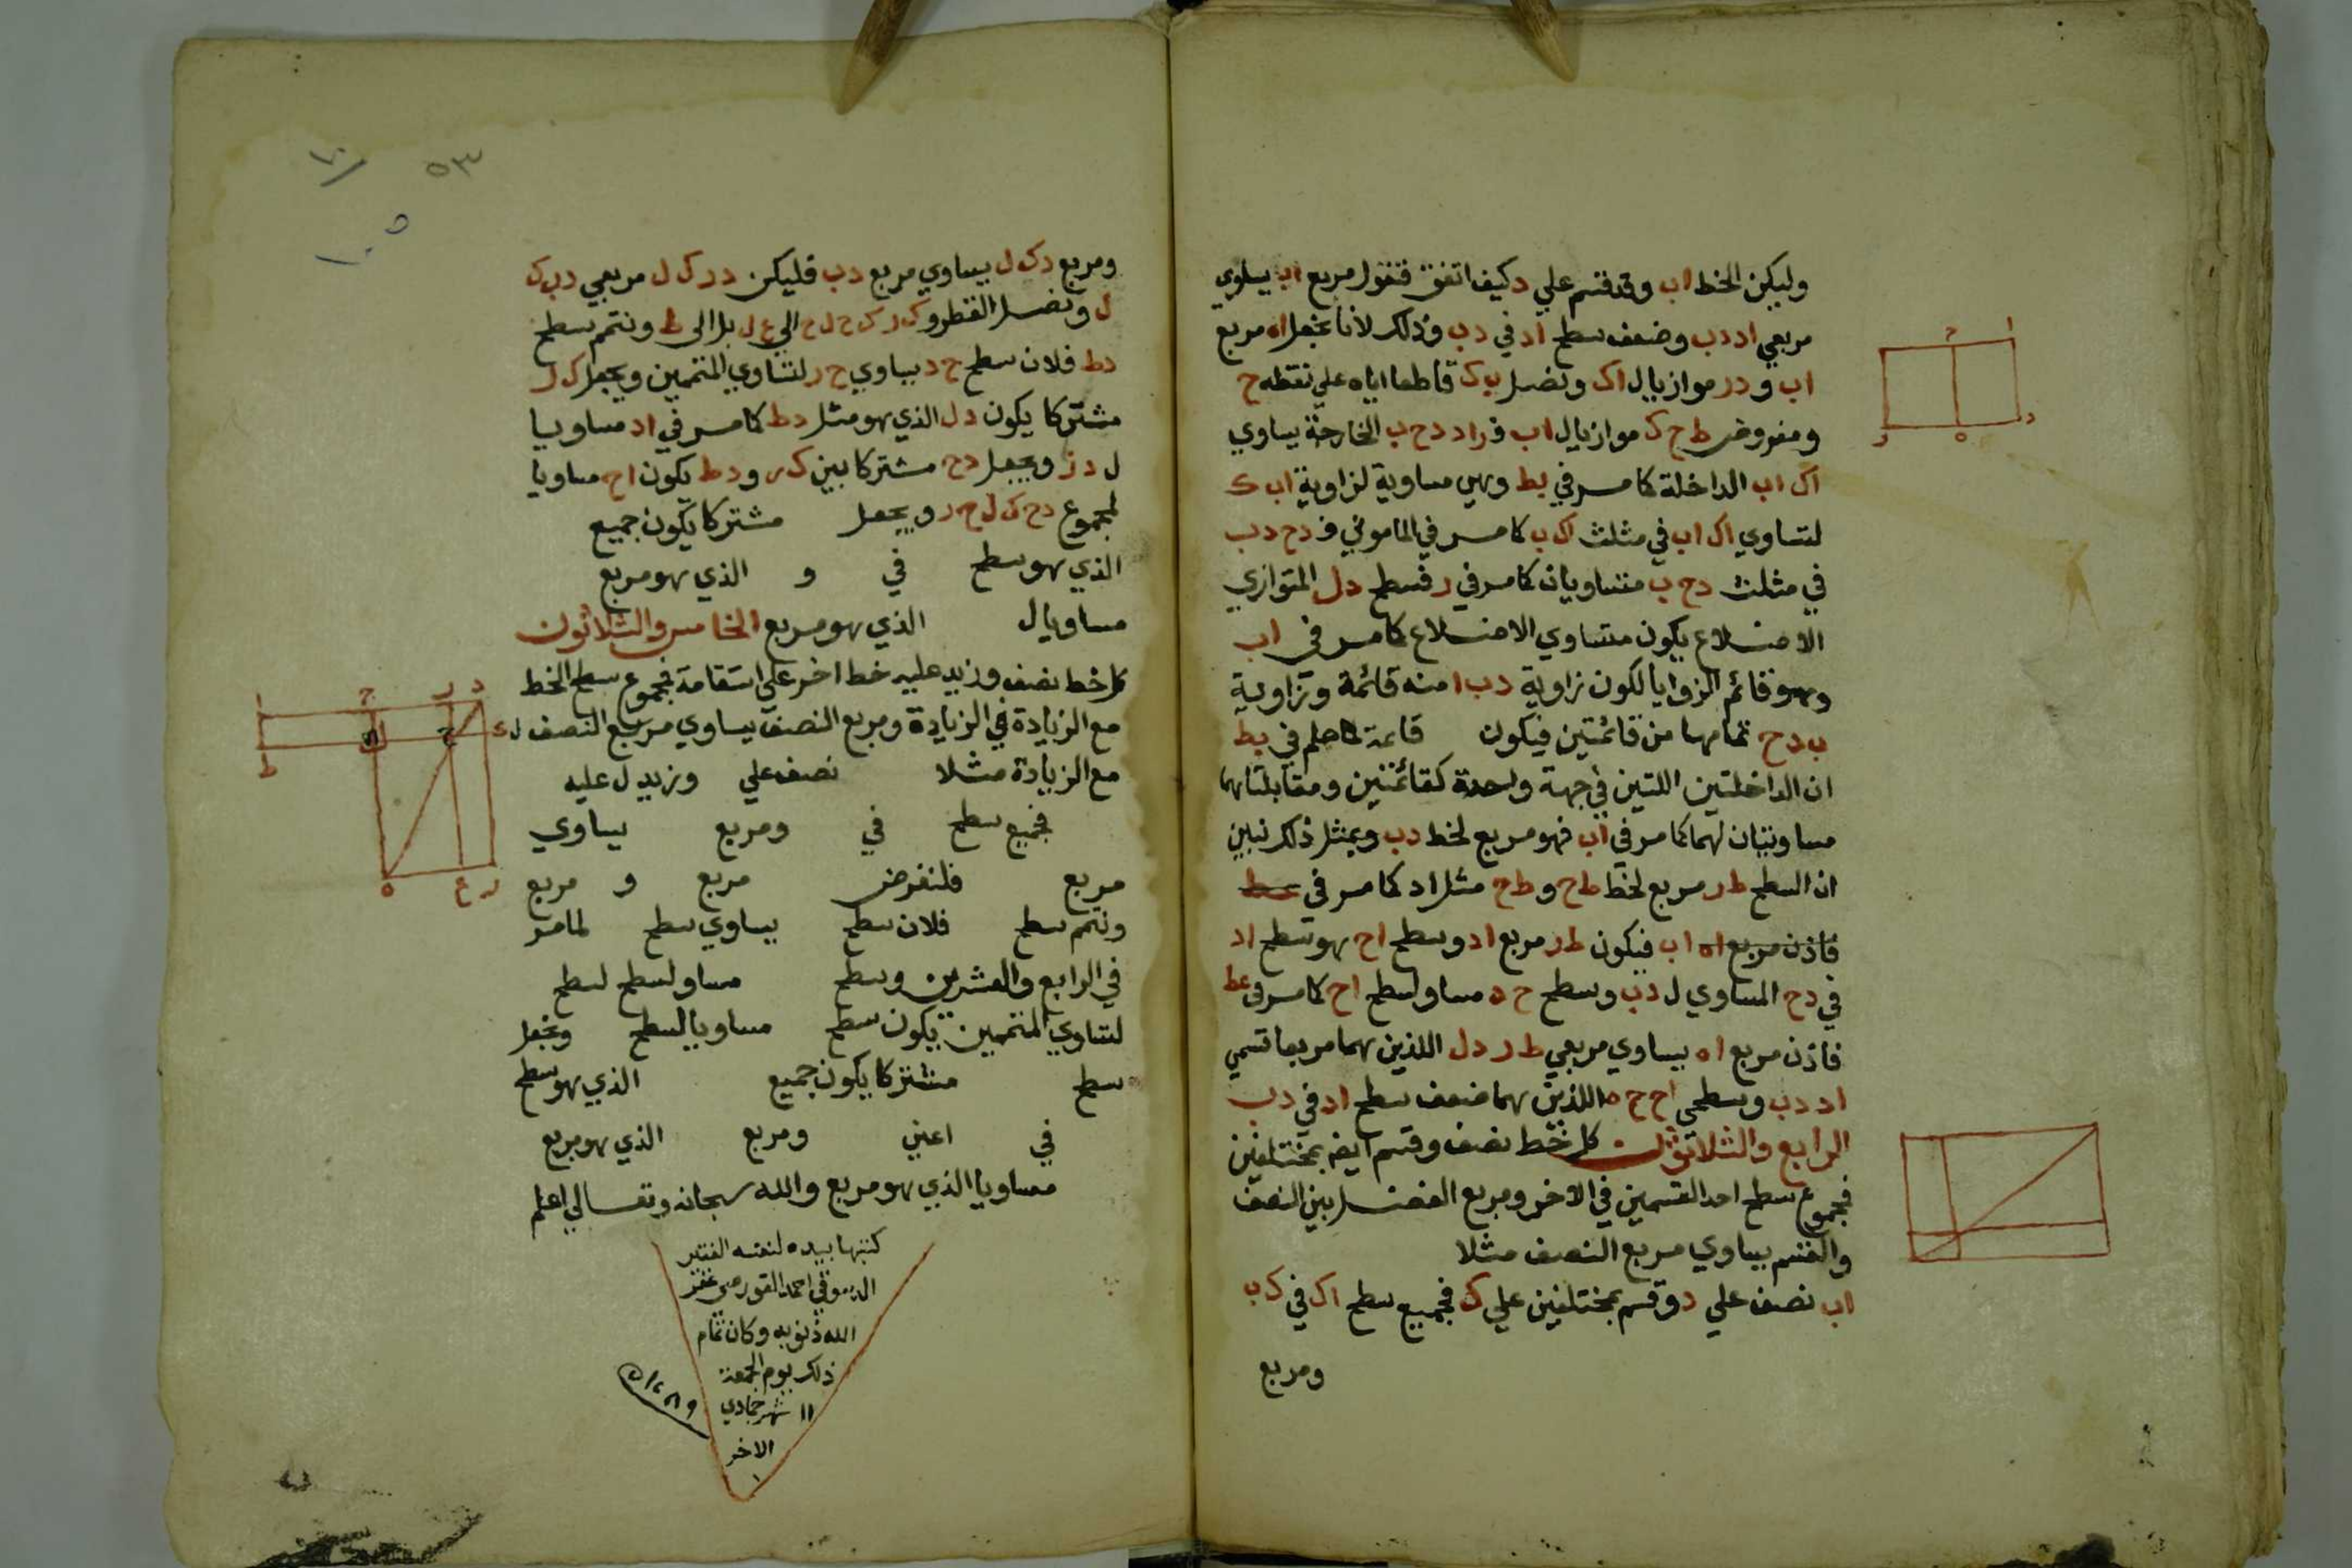 وليكن الخط اب وقد قسم علي د كيف اتفق فنقول مربع اب يساوي
مربعي اد دب وضعف سطح اد في دب وذلك لانا نجعل اه مربع
اب و در موازيا ل اک ونصل ب ک قاطعا اياه علي نقطه ح
ومفروض ط ح ک موازيا ل اب فراد دح ب الخارجة يساوي
اک اب الداخلة كما مر في بط وهي مساوية لزاوية اب ک
لتساوي اک اب في مثلث اک ب كما مر في الماموني فدح دب
في مثلث دح ب متساويان كما مر في ر فسطح دل المتوازي
الاضلاع يكون متساوي الاضلاع كما مر في اب
وهو قائم الزوايا لكون زاوية دب ا منه قائمة وزاوية
ب دح تمامها من قائمتين فيكون قائمة كما علم في بط
ان الداخلتين اللتين في جهة واحدة كقائمتين ومقابلتاهما
مساويتان لهما كما مر في اب فهو مربع لخط دب وبمثل ذلك نبين
ان السطح طر مربع لخط طح و طح مثل اد كما مر في عط
فاذن مربع اه اب فيكون طر مربع اد وسطح اح هو سطح اد
في دح المساوي ل دب وسطح ح ه مساو لسطح اح كما مر في عط
فاذن مربع اه يساوي مربعي طر دل اللذين هما مربعا قسمي
اد دب وسطحي اح ح ه اللذين هما ضعف سطح اد في دب
الرابع والثلاثون كل خط نصف وقسم ايضا بمختلفين
فمجموع سطح احد القسمين في الاخر ومربع الفضل بين النصف
والقسم يساوي مربع النصف مثلا
اب نصف علي د وقسم بمختلفين علي ک فجميع سطح اک في ک ب
ومربع
٥٣
ومربع دک ل يساوي مربع دب فليكن در ک ل مربعي دب ک
ل ونصل القطر و ک ر ک ح ل ح الي ع ل بل الى ط ونتمم سطح
دط فلان سطح ح د يساوي ح ر لتساوي المتممين ونجعل ک ر
مشتركا يكون دل الذي هو مثل دط كما مر في اد مساويا
ل در ونجعل دح مشتركا بين ک ر ودط يكون اح مساويا
لمجموع دح ک ل ح ر ويجعل مشتركا يكون جميع
الذي هو سطح في و الذي هو مربع
مساويا ل الذي هو مربع الخامس والثلاثون
كل خط نصف وزيد عليه خط اخر علي استقامة فمجموع سطح الخط
مع الزيادة في الزيادة ومربع النصف يساوي مربع النصف
مع الزيادة مثلا نصف علي وزيد ل عليه
فجميع سطح في ومربع يساوي
مربع فلنفرض مربع و مربع
ونتمم سطح فلان سطح يساوي سطح لما مر
في الرابع والعشرين وسطح مساو لسطح لسطح
لتساوي المتممين يكون سطح مساويا لسطح ونجعل
سطح مشتركا يكون جميع الذي هو سطح
في اعني ومربع الذي هو مربع
مساويا الذي هو مربع والله سبحانه وتعالي اعلم
كتبها بيده لنفسه الفقير
احمد غفر
الله ذنوبه وكان تمام
ذلك يوم الجمعة
١١ شهر جمادي
الاخر